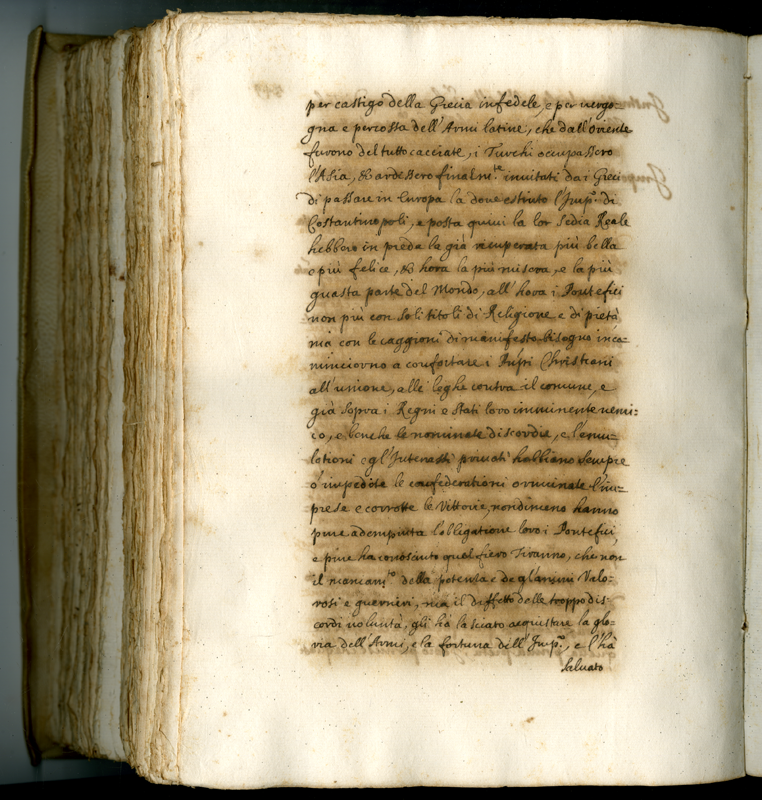 per castigo della Grecia infedele, e per uergo=
gna e percossa dell'Armi latine, che dall'oriente
furono del tutto cacciate, i Turchi occupassero
l'Asia, & ardessero finalm.te inuitati da i Greci
di passare in Europa la doue estinto l'Imp.o di
Costantinopoli, e posta quiui la lor Sedia Reale
hebbero in preda la già recuperata più bella
e più felice, & hora la più misera, e la più
guasta parte del Mondo, all'hora i Pontefici
non più con soli titoli di Religione e di pietà
ma con le caggioni di manifesto bisogno inco=
minciorno a confortare i Christiani
all'unione, alle leghe contra il comune, e
già sopra i Regni e stati loro imminente nemi=
co, e benche le nominate discordie, e l'emu=
lationi e gl'Interessi priuati habbiano sempre
ò impedite le confederationi ò ruinate l'im=
prese e corrotte le Vittorie, nondimeno hanno
pure adempiuta l'obligatione loro i Pontefici,
e pure ha conosciuto quel fiero Tiranno, che non
il mancam.to della potenza e de gl'animi Valo=
rosi e guerrieri, ma il diffetto delle troppo dis=
cordi uoluntà, gli hà lasciato acquistare la glo=
ria dell'Armi, e la fortuna dell'Imp.o, e l'hà
saluato